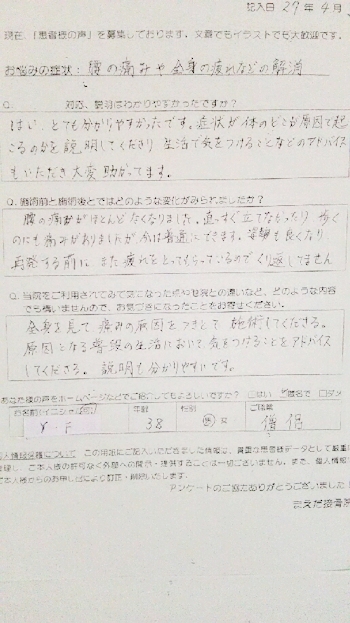 記入日 29年4月
現在、「患者様の声」を募集しております。文章でもイラストでも大歓迎です。
お悩みの症状: 腰の痛みや全身の疲れなどの解消
Q. 対応、説明はわかりやすかったですか?
はい。とても分かりやすかったです。症状が体のどこが原因で起
こるのかを説明してくださり 生活で気をつけることなどのアドバイス
もいただき大変助かってます。
Q. 施術前と施術後とではどのような変化がみられましたか?
腰の痛みがほとんどなくなりました。真っすぐ立てなかったり 歩く
のにも痛みがありましたが、今は普通にできます。姿勢も良くなり
再発する前に また疲れをとってもらっているのでくり返してません
Q. 当院をご利用されてみて気になった点や他院との違いなど、どのような内容
でも構いませんので、お気づきになったことをお寄せください。
全身を見て 痛みの原因をつきとめ 施術してくださる。
原因となる普段の生活において気をつけることをアドバイス
してくださる。 説明も分かりやすいです。
あなた様の声をホームページなどでご紹介してもよろしいですか? □はい □匿名で □ダメ
お名前(イニシャル可) 年齢 性別 ご職業
Y・F 38 男 女 僧侶
個人情報保護について この用紙にご記入いただきました情報は、貴重な患者様データとして厳重に
管理し、ご本人様の許可なく外部への開示・提供することは一切ございません。また、個人情報
ご本人様からのお申し出により訂正・削除いたします。
アンケートのご協力ありがとうございました!
まえだ接骨院